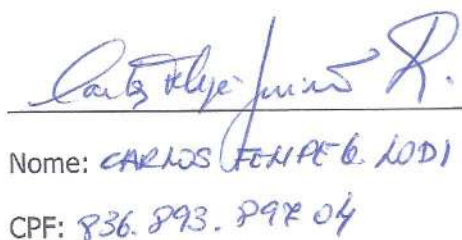 Nome: CARLOS FELIPE G. LODI
CPF: 836.893.897 04